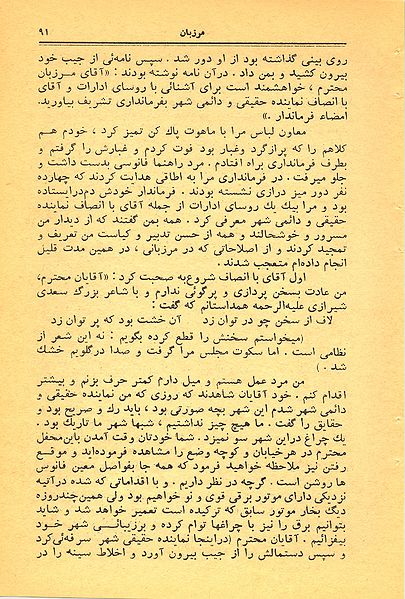 مرزبان ۹۱
روی بینی گذاشته بود از او دور شد . سپس نامه‌ئی از جیب خود
بیرون کشید و بمن داد . درآن نامه نوشته بودند : «آقای مرزبان
محترم ، خواهشمند است برای آشنائی با روسای ادارات و آقای
با انصاف نماینده حقیقی و دائمی شهر بفرمانداری تشریف بیاورید.
امضاء فرماندار .»
معاون لباس مرا با ماهوت پاك کن تمیز کرد ، خودم هم
کلاهم را که پرازگرد وغبار بود فوت کردم و غبارش را گرفتم و
بطرف فرمانداری براه افتادم . مرد راهنما فانوسی بدست داشت و
جلو میرفت . در فرمانداری مرا به اطاقی هدایت کردند که چهارده
نفر دور میز درازی نشسته بودند . فرماندار خودش دم‌درایستاده
بود و مرا بیك یك روسای ادارات از جمله آقای با انصاف نماینده
حقیقی و دائمی شهر معرفی کرد . همه بمن گفتند که از دیدار من
مسرور و خوشحالند و همه از حسن تدبیر و کیاست من تعریف و
تمجید کردند و از اصلاحاتی که در مرزبانی ، در همین مدت قلیل
انجام داده‌ام متعجب شدند .
اول آقای با انصاف شروع‌به صحبت کرد : «آقایان محترم،
من عادت بسخن پردازی و پرگوئی ندارم و با شاعر بزرگ سعدی
شیرازی علیه‌الرحمه همداستانم که گفت :
لاف از سخن چو در توان زد آن خشت بود که پر توان زد
(میخواستم سخنش را قطع کرده بگویم : نه این شعر از
نظامی است . اما سکوت مجلس مرا گرفت و صدا درگلویم خشك
شد . )
من مرد عمل هستم و میل دارم کمتر حرف بزنم و بیشتر
اقدام کنم . خود آقایان شاهدند که روزی که من نماینده حقیقی و
دائمی شهر شدم این شهر بچه صورتی بود ، باید رك و صریح بود و
حقایق را گفت . ما هیچ چیز نداشتیم ، شبها شهر ما تاریك بود .
یك چراغ دراین شهر سو نمیزد . شما خودتان وقت آمدن باین‌محفل
محترم در هرخیابان و کوچه وضع را مشاهده فرموده‌اید و موقع
رفتن نیز ملاحظه خواهید فرمود که همه جا بفواصل معین فانوس
ها روشن است . گرچه در نظر داریم . و با اقداماتی که شده درآتیه
نزدیکی دارای موتور برقی قوی و نو خواهیم بود ولی همین‌چندروزه
دیگ بخار موتور سابق که ترکیده است تعمیر خواهد شد و شاید
بتوانیم برق را نیز با چراغها توام کرده و برزیبائی شهر خود
بیفزائیم . آقایان محترم (دراینجا نماینده حقیقی شهر سرفه‌ئی‌کرد
و سپس دستمالش را از جیب بیرون آورد و اخلاط سینه را در